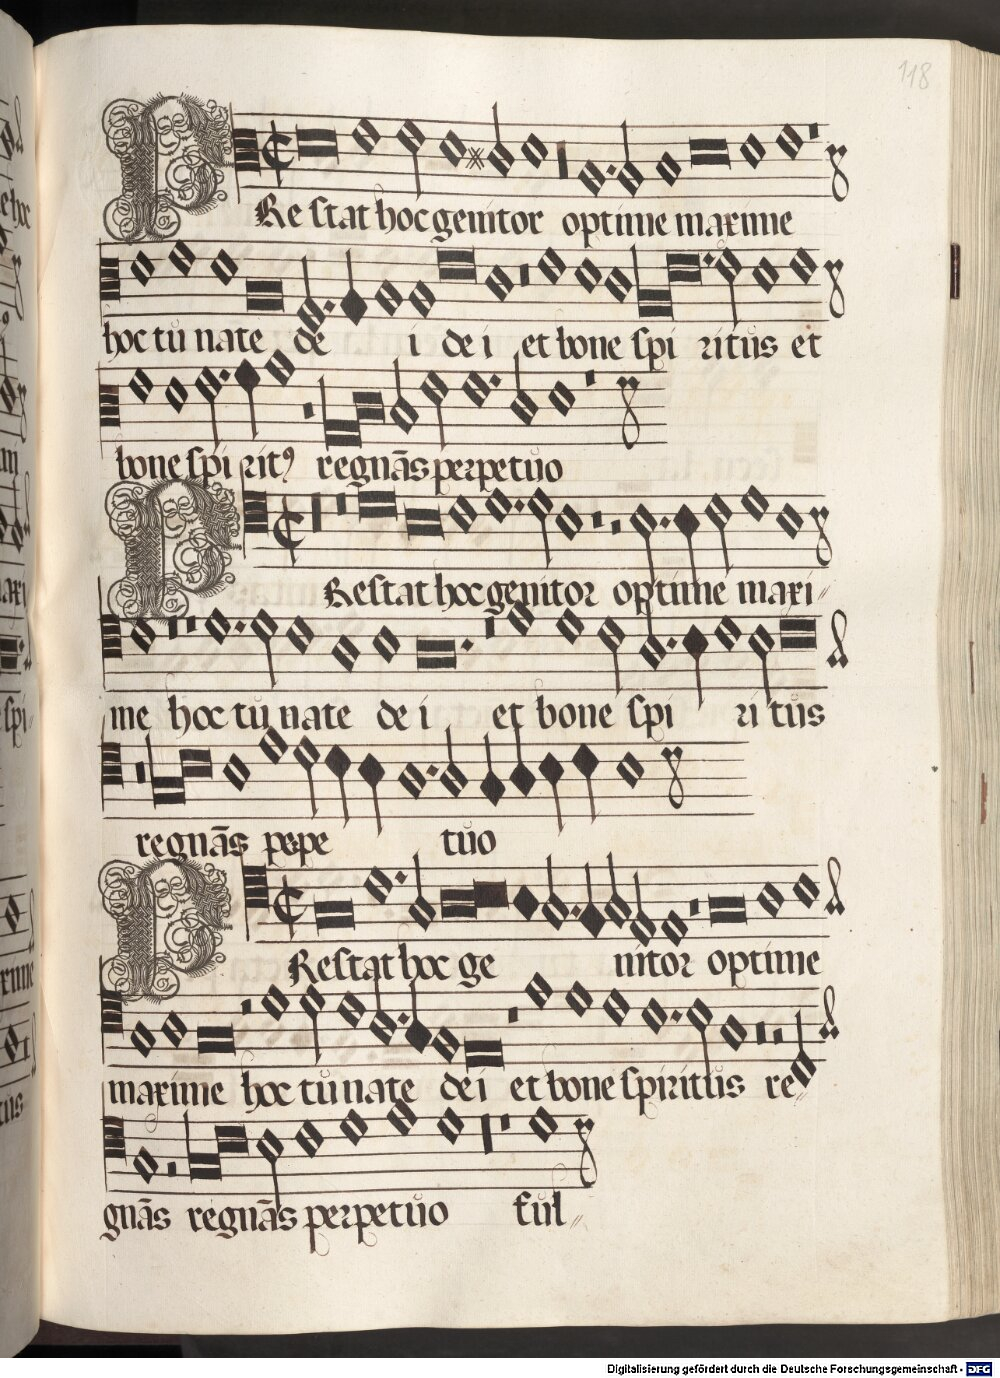 118
PRestat hoc genitor optime maxime
hoc tu nate de i de i et bone spi ritus et
bone spi ritꝰ regnās perpetuo
PRestat hoc genitor optime maxi
me hoc tu nate de i et bone spi ri tus
regnās ꝑpe tuo
PRestat hoc ge nitor optime
maxime hoc tu nate dei et bone spiritus re
gnās regnās perpetuo ful
Digitalisierung gefördert durch die Deutsche Forschungsgemeinschaft - DFG